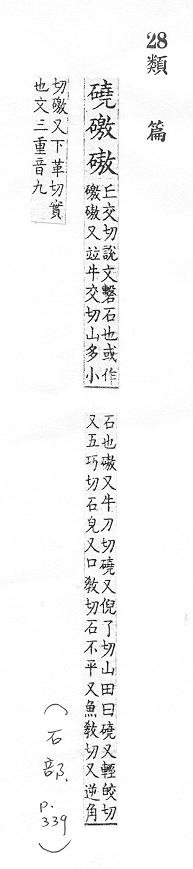 28
類篇
磽礉磝
丘交切說文磬石也或作
礉磝又竝牛交切山多小
石也磝又牛刀切磽又倪了切山田曰磽又輕皎切
又五巧切石皃又口敎切石不平又魚敎切又逆角
切礉又下革切實
也文三重音九
(石部, p.339)